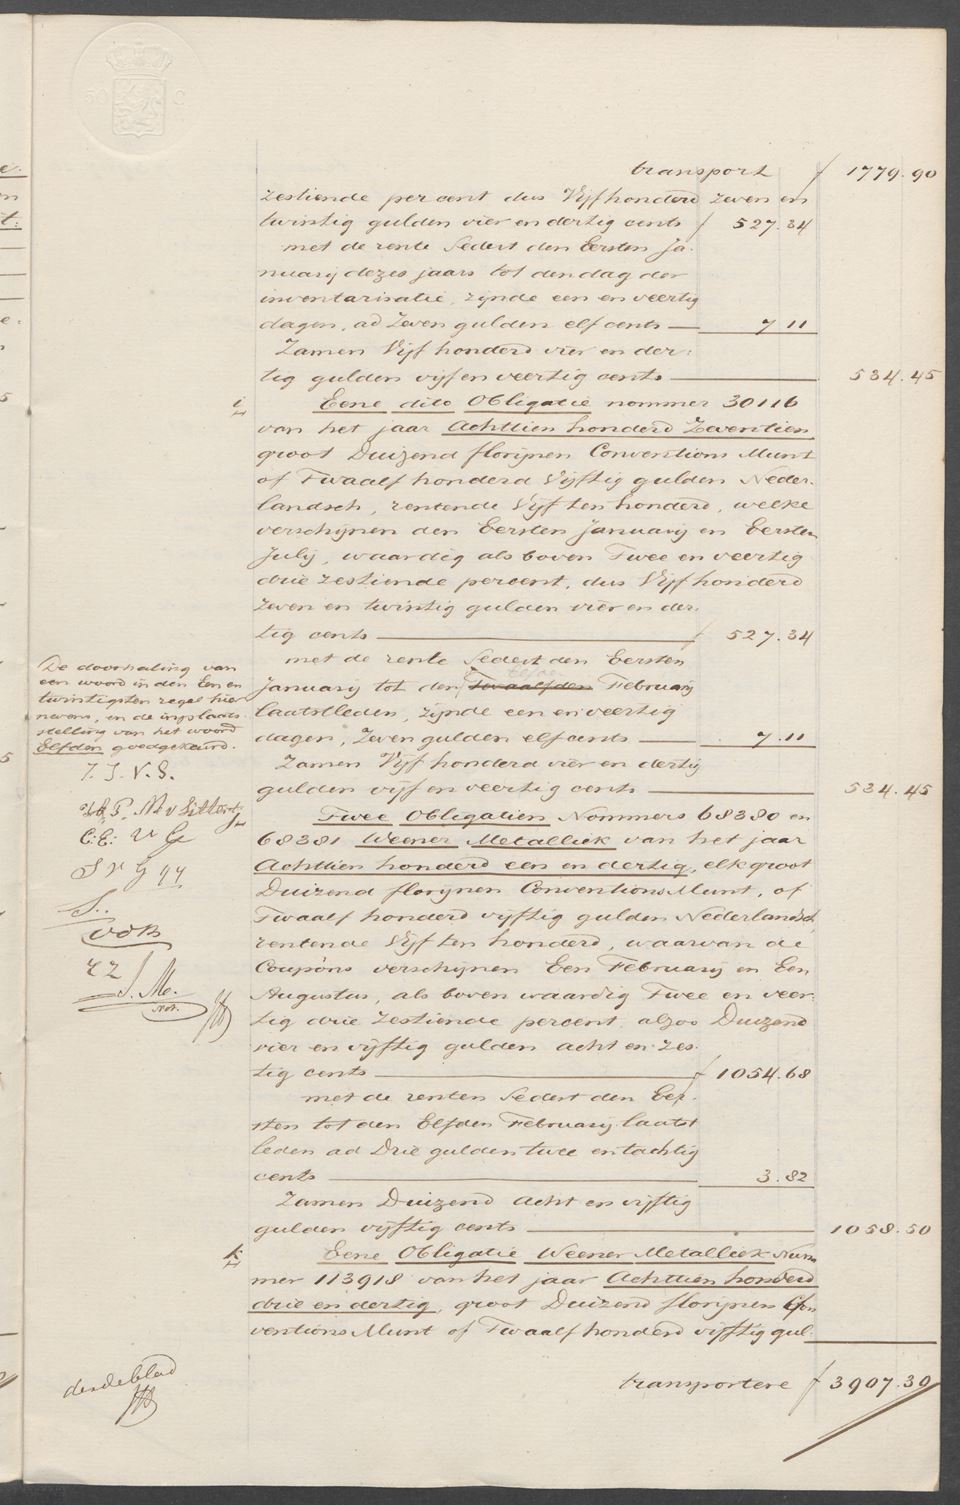 50 C
transport f 1779.90
zestiende per cent dus Vijfhonderd zeven en
twintig gulden vier en dertig cents f 527.34
met de rente Sedert den Eersten Ja-
nuarij dezes jaars tot den dag der
inventarisatie, zijnde een en veertig
dagen, ad Zeven gulden elf cents 7.11
Zamen Vijf honderd vier en der-
tig gulden vijf en veertig cents 534.45
i Eene dito Obligatie nommer 30116
van het jaar Achttien honderd Zeventien
groot Duizend florijnen Conventions Munt
of Twaalf honderd Vijftig gulden Neder-
landsch, rentende Vijf ten honderd, welke
verschijnen den Eersten Januarij en Eersten
Julij, waardig als boven Twee en veertig
drie zestiende percent, dus Vijf honderd
zeven en twintig gulden vier en der-
tig cents f 527.34
met de rente Sedert den Eersten
Elfden
Januarij tot den Twaalfden Februarij
laatstleden, zijnde een en veertig
dagen, Zeven gulden elf cents 7.11
Zamen Vijf honderd vier en dertig
gulden vijf en veertig cents 534.45
De doorhaling van
een woord in den Een en
twintigsten regel hier
nevens, en de inplaats-
stelling van het woord
Elfden goedgekeurd.
Twee Obligatien Nommers 68380 en
68381 Weener Metalliek van het jaar
Achttien honderd een en dertig, elk groot
Duizend florijnen Conventions Munt, of
Twaalf honderd vijftig gulden Nederlandsch,
rentende Vijf ten honderd, waarvan de
Coupons verschijnen Een Februarij en Een
Augustus, als boven waardig Twee en veer-
tig drie zestiende percent, alzoo Duizend
vier en vijftig gulden acht en zes-
tig cents f 1054.68
met de renten Sedert den Eer-
sten tot den Elfden Februarij laatst
leden ad Drie gulden twee en tachtig
cents 3.82
Zamen Duizend acht en vijftig
gulden vijftig cents 1058.50
k Eene Obligatie Weener Metalliek Num
mer 113918 van het jaar Achttien honderd
drie en dertig, groot Duizend florijnen Con
ventions Munt of Twaalf honderd vijftig gul-
transportere f 3907.30
derde blad